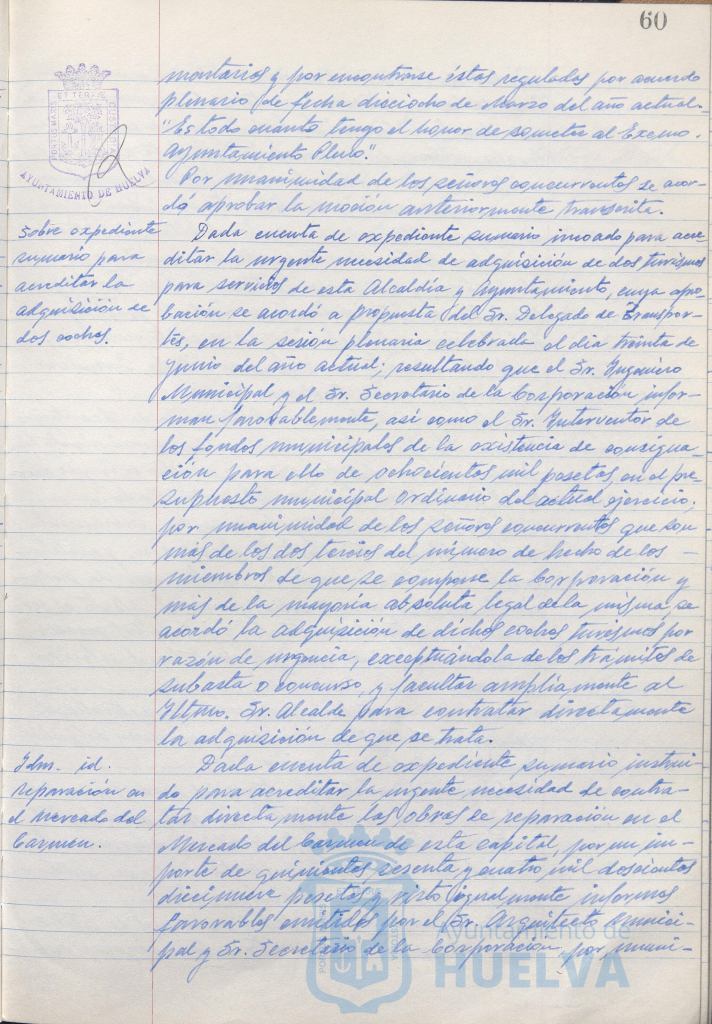 60
mentarios y por encontrarse éstos regulados por acuerdo
plenario de fecha dieciocho de Marzo del año actual.
"Es todo cuanto tengo el honor de someter al Excmo.
Ayuntamiento Pleno."
Por unanimidad de los señores concurrentes se acor-
dó aprobar la moción anteriormente transcrita.
Sobre expediente
sumario para
acreditar la
adquisición de
dos coches.
Dada cuenta de expediente sumario incoado para acre-
ditar la urgente necesidad de adquisición de dos turismos
para servicios de esta Alcaldía y Ayuntamiento, cuya apro-
bación se acordó a propuesta del Sr. Delegado de Transpor-
tes, en la sesión plenaria celebrada el día treinta de
Junio del año actual; resultando que el Sr. Ingeniero
Municipal y el Sr. Secretario de la Corporación infor-
man favorablemente, así como el Sr. Interventor de
los fondos municipales de la existencia de consigna-
ción para ello de ochocientas mil pesetas, en el pre-
supuesto municipal ordinario del actual ejercicio;
por unanimidad de los señores concurrentes que son
más de los dos tercios del número de hecho de los
miembros de que se compone la Corporación y
más de la mayoría absoluta legal de la misma, se
acordó la adquisición de dichos coches turismos por
razón de urgencia, exceptuándola de los trámites de
subasta o concurso, y facultar ampliamente al
Iltmo. Sr. Alcalde para contratar directamente
la adquisición de que se trata.
Idm. id.
reparación en
el Mercado del
Carmen.
Dada cuenta de expediente sumario instrui-
do para acreditar la urgente necesidad de contra-
tar directamente las obras de reparación en el
Mercado del Carmen de esta capital, por un im-
porte de quinientas sesenta y cuatro mil doscientas
diecinueve pesetas y visto igualmente informes
favorables emitidos por el Sr. Arquitecto Munici-
pal y Sr. Secretario de la Corporación, por unani-
AYUNTAMIENTO DE HUELVA
Ayuntamiento de
HUELVA